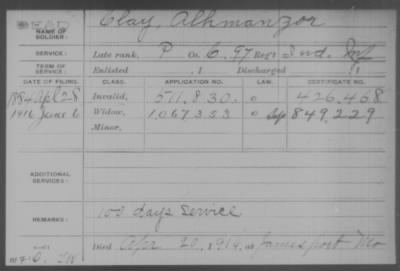 DEAD
NAME OF SOLDIER: Clay, Alhmanzor
SERVICE: Late rank, P Co. C. 97 Reg't Ind. Inf
TERM OF SERVICE: Enlisted , 1 Discharged , 1
DATE OF FILING. CLASS. APPLICATION NO. LAW. CERTIFICATE NO.
1884 Apl 28 Invalid, 511.830. o 426.468
1916 June 6 Widow, 1067353 o Sep 849.229
Minor,
ADDITIONAL SERVICES:
REMARKS: 100 days service
Died Apr 20, 1916, at Jamesport Mo